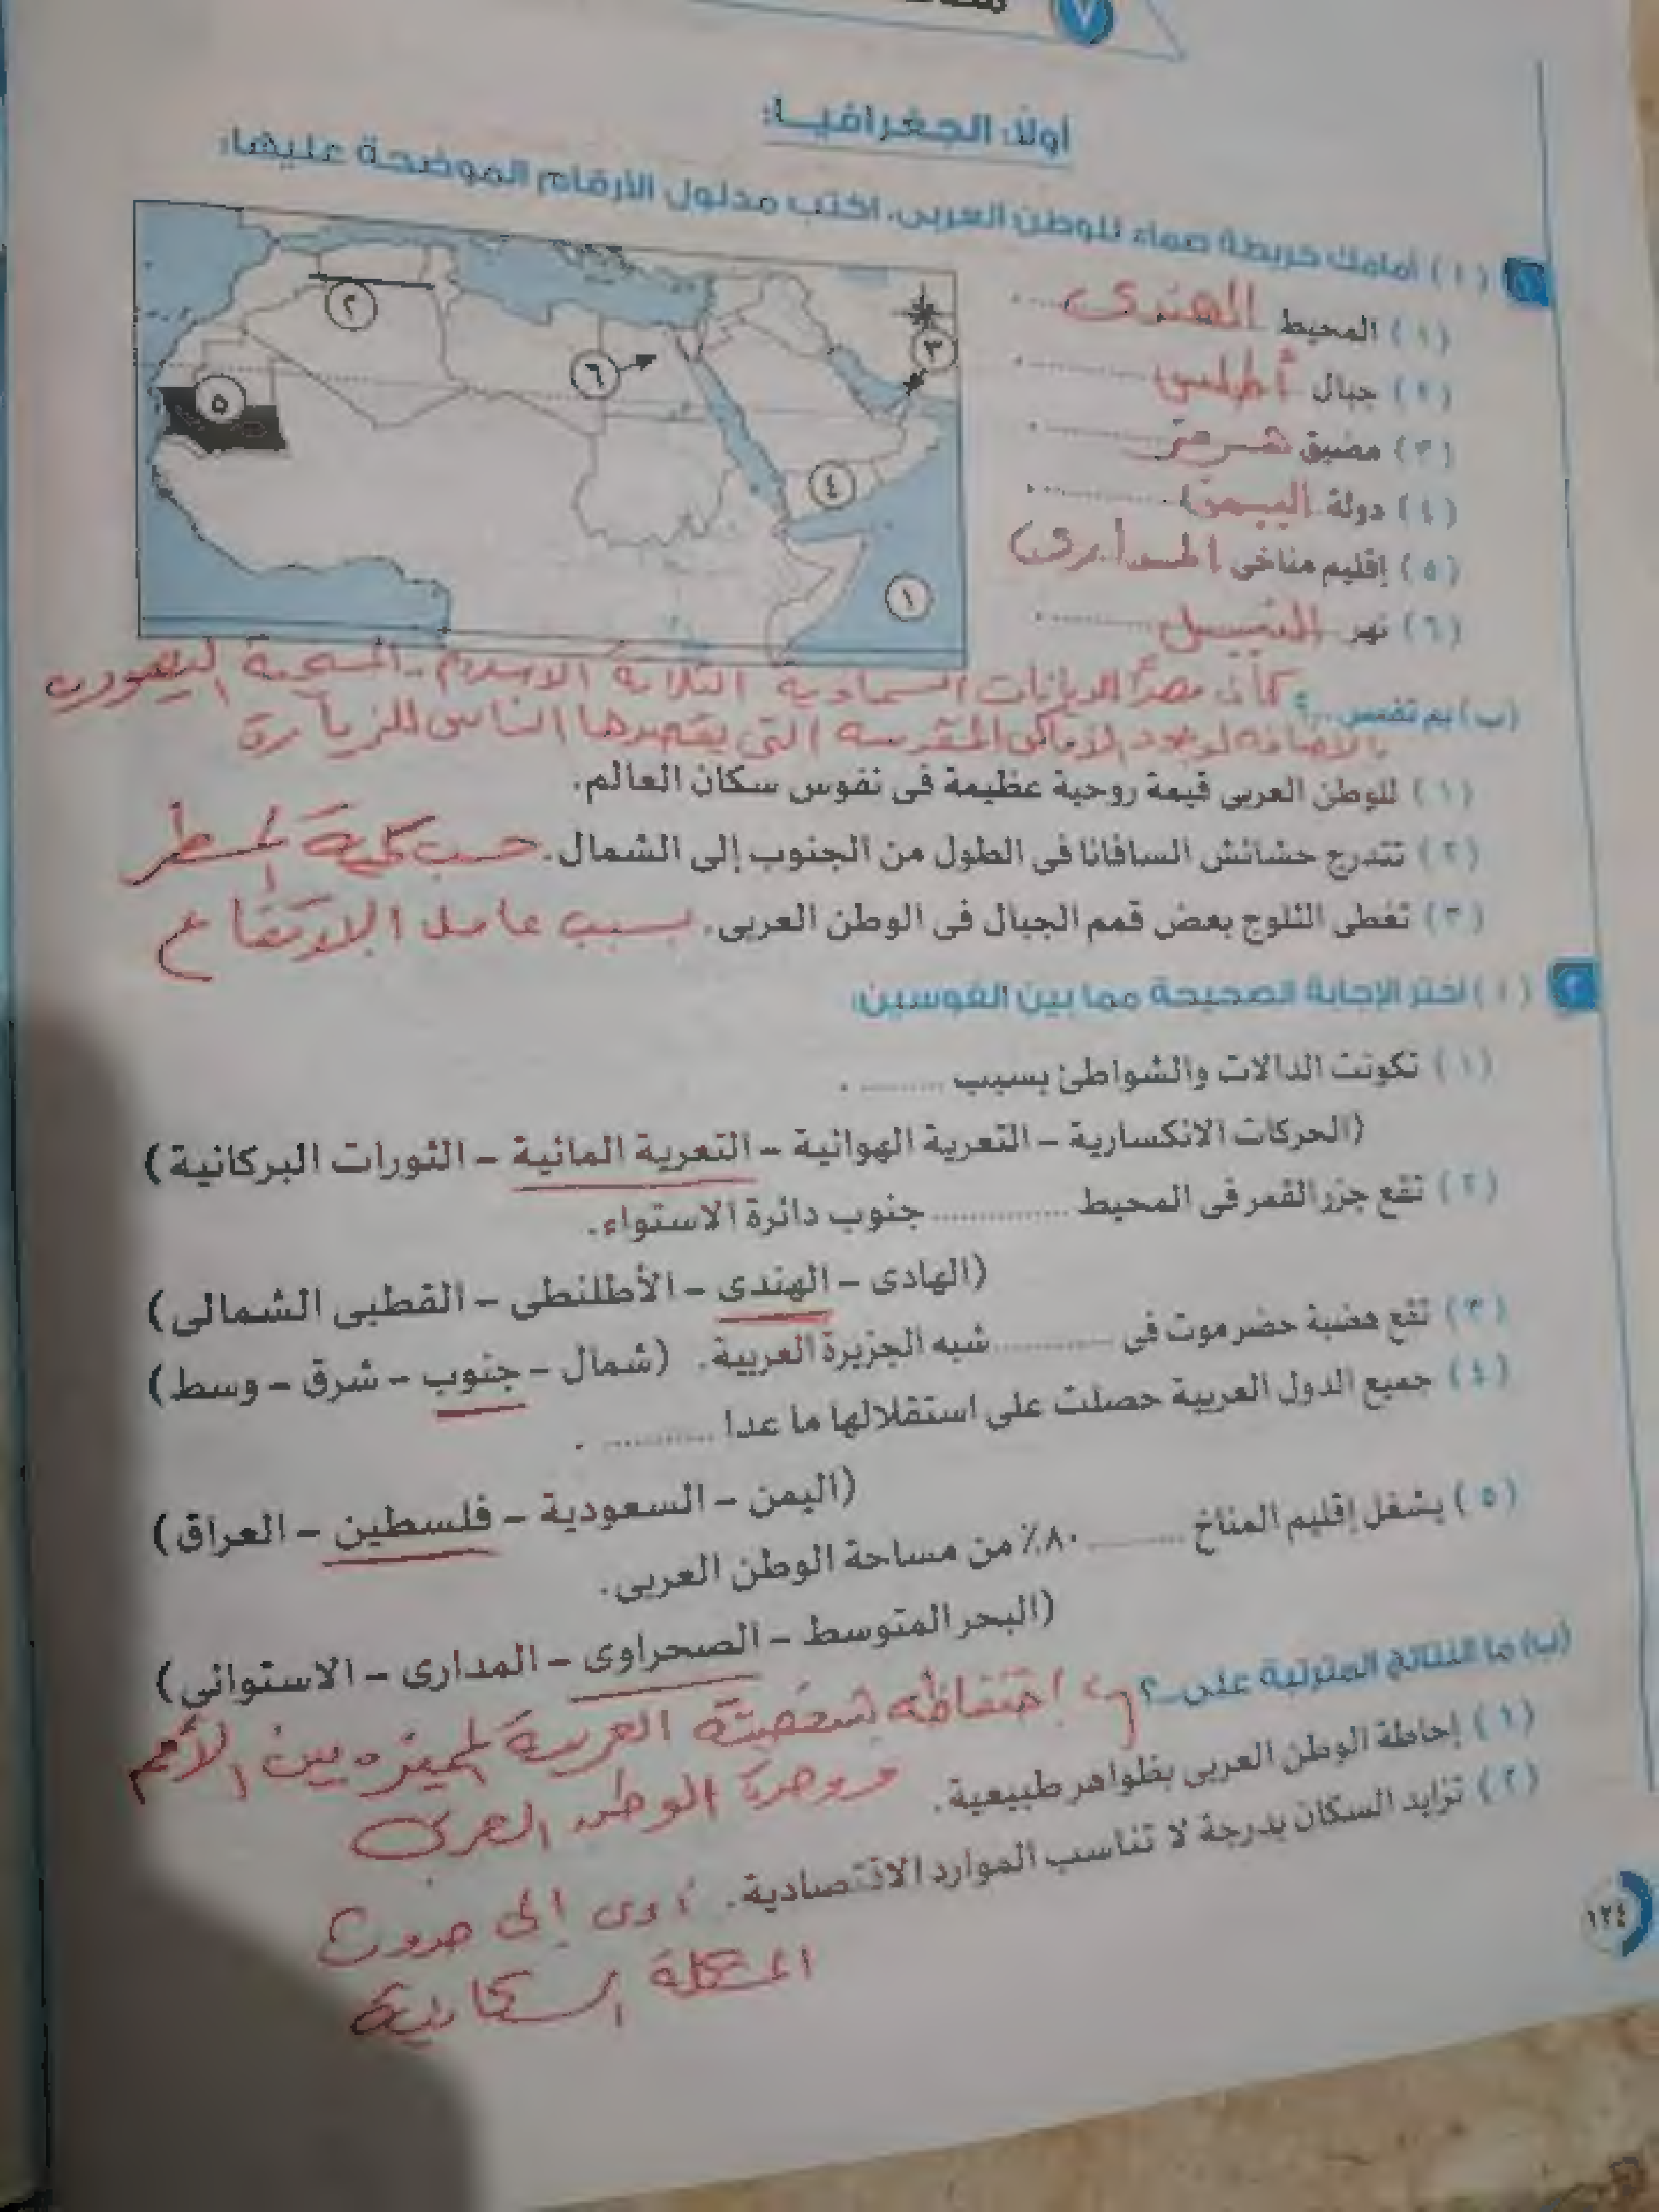 ٧
أولًا: الجغرافيا:
١ (١) أمامك خريطة صماء للوطن العربى، اكتب مدلول الأرقام الموضحة عليها:
(١) المحيط الهندى
(٢) جبال أطلس
(٣) مضيق هرمز
(٤) دولة اليمن
(٥) إقليم مناخى المدارى
(٦) نهر النيل
٢
٣
٦
٥
٤
١
(ب) بم تفسر...؟ كان مصدرًا للديانات السماوية الثلاثة الاسلام - المسيحية اليهودية
بالاضافة لوجود الأماكن المقدسة التى يقصدها الناس للزيارة
(١) للوطن العربى قيمة روحية عظيمة فى نفوس سكان العالم.
(٢) تتدرج حشائش السافانا فى الطول من الجنوب إلى الشمال. حسب كمية المطر
(٣) تغطى الثلوج بعض قمم الجبال فى الوطن العربى. بسبب عامل الارتفاع
٢ (١) اختر الإجابة الصحيحة مما بين القوسين:
(١) تكونت الدالات والشواطئ بسبب .......... .
(الحركات الانكسارية – التعرية الهوائية – التعرية المائية – الثورات البركانية)
(٢) تقع جزر القمر فى المحيط .......... جنوب دائرة الاستواء.
(الهادى – الهندى – الأطلنطى – القطبى الشمالى)
(٣) تقع هضبة حضرموت فى .......... شبه الجزيرة العربية. (شمال – جنوب – شرق – وسط)
(٤) جميع الدول العربية حصلت على استقلالها ما عدا .......... .
(اليمن – السعودية – فلسطين – العراق)
(٥) يشغل إقليم المناخ .......... ٨٠٪ من مساحة الوطن العربى.
(البحر المتوسط – الصحراوى – المدارى – الاستوائى)
(ب) ما النتائج المترتبة على...؟ احتفاظه بشخصيته العربية المميزة بين الأمم
(١) إحاطة الوطن العربى بظواهر طبيعية. ووحدة الوطن العربى
(٢) تزايد السكان بدرجة لا تناسب الموارد الاقتصادية. أدى إلى حدوث
المشكلة السكانية
١٢٤